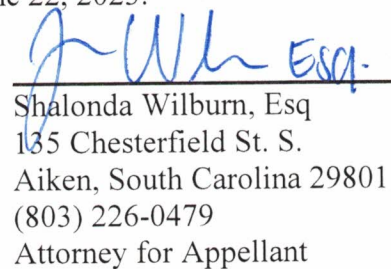 22, 2023.
Esq.
Shalonda Wilburn, Esq
135 Chesterfield St. S.
Aiken, South Carolina 29801
(803) 226-0479
Attorney for Appellant